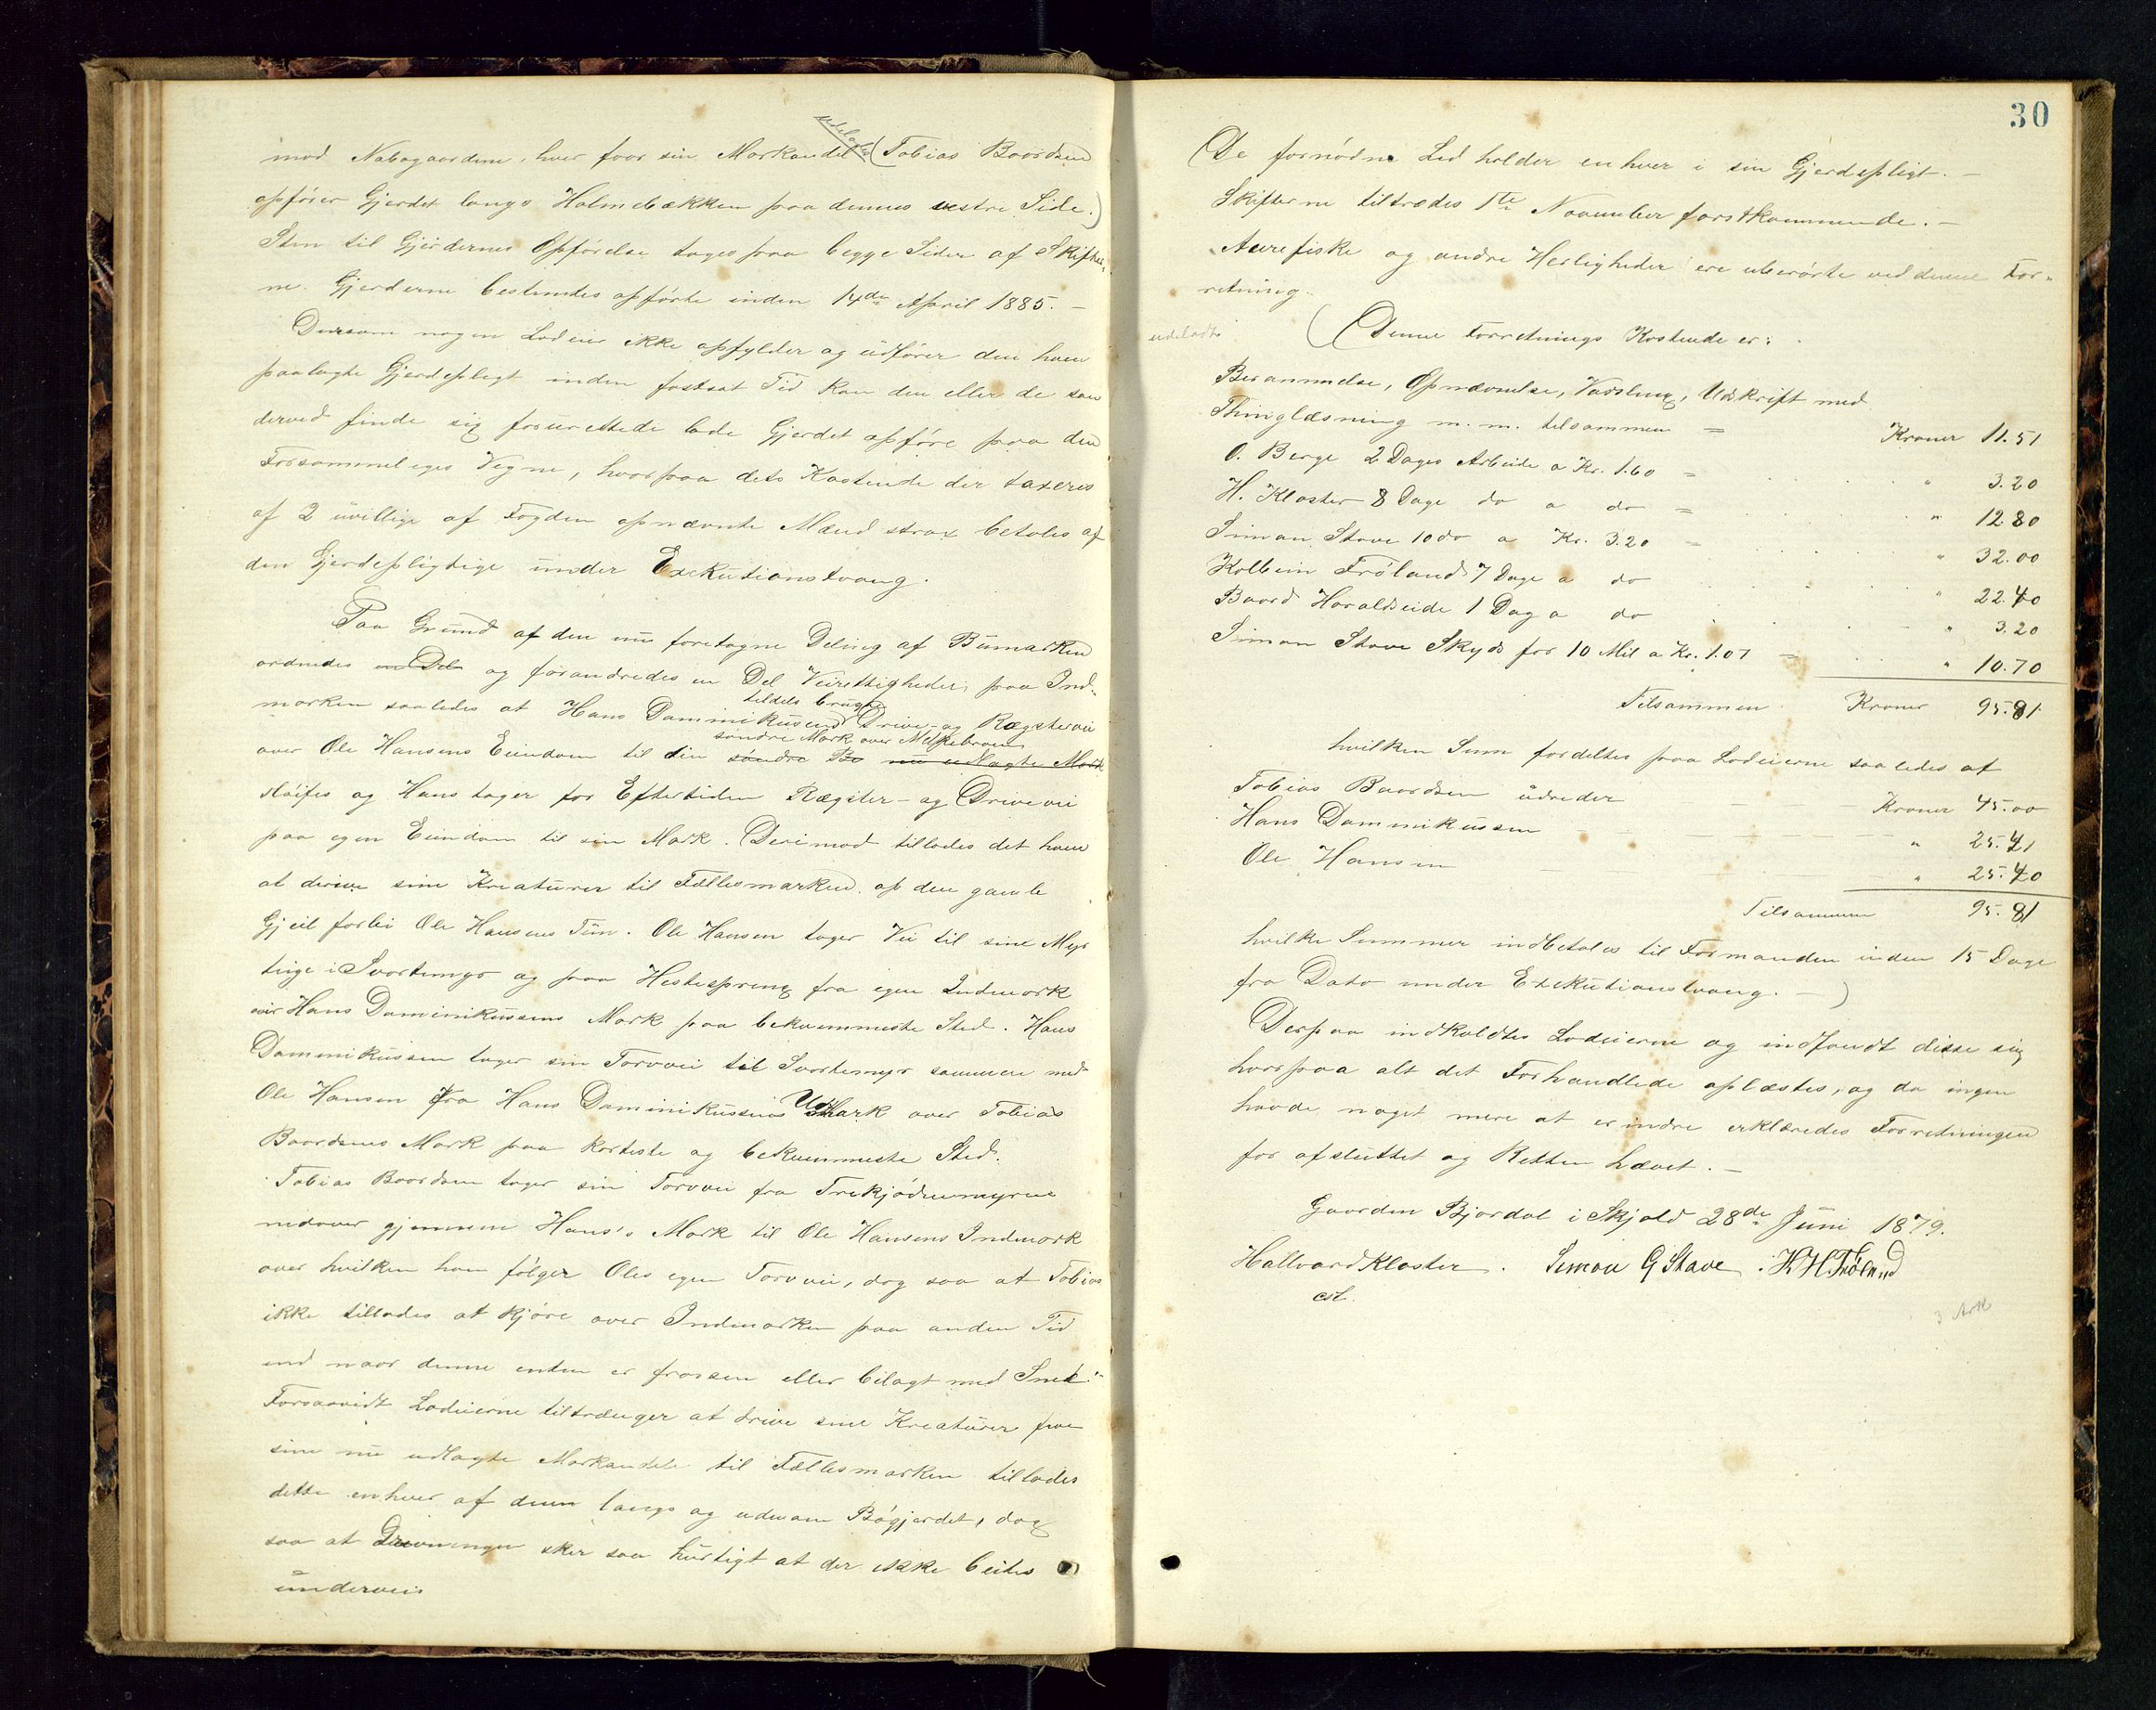 mod Nabogaardene, hver foor sin Markandel udeladte (Tobias Baardsen
opfører Gjerdet langs Holmebækken paa dennes vestre Side.)
Sten til Gjerdernes Opførelse tages paa begge Sider af Skifter-
ne. Gjerderne bestemtes opførte inden 14de April 1885. –
Dersom nogen Lodeier ikke opfylder og udfører den ham
paalagte Gjerdepligt inden fastsat Tid kan den eller de som
derved finde sig forurettede lade Gjerdet opføre paa den
Forsømmeliges Vegne, hvorpaa dets Kostende der taxeres
af 2 uvillige af Fogden opnævnte Mænd strax betales af
den Gjerdepligtige under Exekutionstvang.
Paa Grund af den nu foretagne Deling af Bumarken
ordnedes en Del og forandredes en Del Veirettigheder paa Ind-
marken saaledes at Hans Dominikusens tildels brugte Drive- og Rægstervei
over Ole Hansens Eiendom til den søndre Bø søndre Mark over Melkebroen nu udlagte Mark
sløifes og Hans tager for Eftertiden Rægster- og Drivevei
paa egen Eiendom til sin Mark. Derimod tillades det ham
at drive sine Kreaturer til Fællesmarken op den gamle
Gjeil forbi Ole Hansens Tun. Ole Hansen tager Vei til sine Myr
teige i Svartemyr og paa Hestespreng fra egen Indmark
over Hans Dominikusens Mark paa bekvemmeste Sted. Hans
Dominikussen tager sin Torvvei til Svartemyr sammen med
Ole Hansen fra Hans Dominikussens Udmark over Tobias
Baardsens Mark paa korteste og bekvemmeste Sted.
Tobias Baardsen tager sin Torvvei fra Trekjødnmyrene
nedover gjennem Hans's Mark til Ole Hansens Indmark
over hvilken han følger Oles egen Torvvei, dog saa at Tobias
ikke tillades at kjøre over Indmarken paa anden Tid
end naar denne enten er frossen eller bilagt med Snee. –
Forsaavidt Lodeierne tiltrænger at drive sine Kreaturer fra
sine nu udlagte Markandele til Fællesmarken tillades
dette enhver af dem langs og udenom Bøgjerdet, dog
saa at Drivningen sker saa hurtigt at der ikke beites
underveis
30
(De fornødne Led holder enhver i sin Gjerdepligt. –
Skifterne tiltrædes 1te November førstkommende. –
Aurefiske og andre Herligheder ere uberørte ved denne For-
retning.
udeladt (Denne Forretnings Kostende er:
Berammelse, Opnævnelse, Varsling, Udskrift med
Thinglæsning m. m. tilsammen = Kroner 11.51
O. Berge 2 Dages Arbeide a Kr. 1.60 = " 3.20
H. Kloster 8 Dage do a do = " 12.80
Simon Stave 10 do a Kr. 3.20 = " 32.00
Kolbein Frøland 7 Dage a do " 22.40
Baard Haraldseide 1 Dag a do " 3.20
Simon Stave Skyds for 10 Mil a Kr. 1.07 = " 10.70
Tilsammen Kroner 95.81
hvilken Sum fordeltes paa Lodeierne saaledes at
Tobias Baardsen udreder Kroner 45.00
Hans Dominikussen " 25.41
Ole Hansen " 25.40
Tilsammen 95.81
hvilke Summer indbetales til Formanden inden 15 Dage
fra Dato under Exekutionstvang. –)
Derpaa indkaldtes Lodeierne og indfandt disse sig
hvorpaa alt det Forhandlede oplæstes, og da ingen
havde noget mere at erindre erklæredes Forretningen
for afsluttet og Retten hævet. –
Gaarden Bjordal i Skjold 28de Juni 1879.
Hallvard Kloster. Simon G Stave. K H. Frøland
cst.
3 Ark